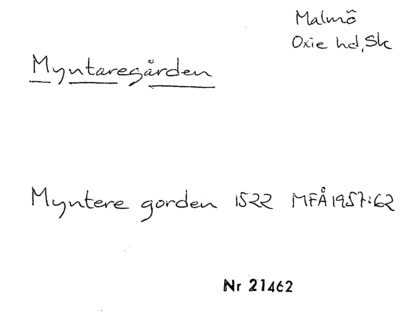 Malmö
Oxie hd, Sk
Myntaregården
Myntere gorden 1522 MFÅ 1957:62
Nr 21462